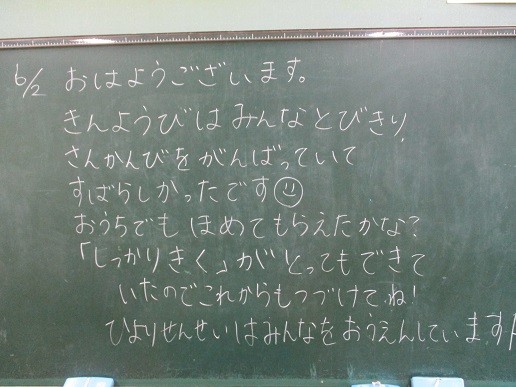 6/2 おはようございます。
きんようびは みんな とびきり、
さんかんびを がんばっていて
すばらしかったです
おうちでも ほめてもらえたかな?
「しっかりきく」が とってもできて
いたのでこれからもつづけてね!
ひよりせんせいはみんなをおうえんしています